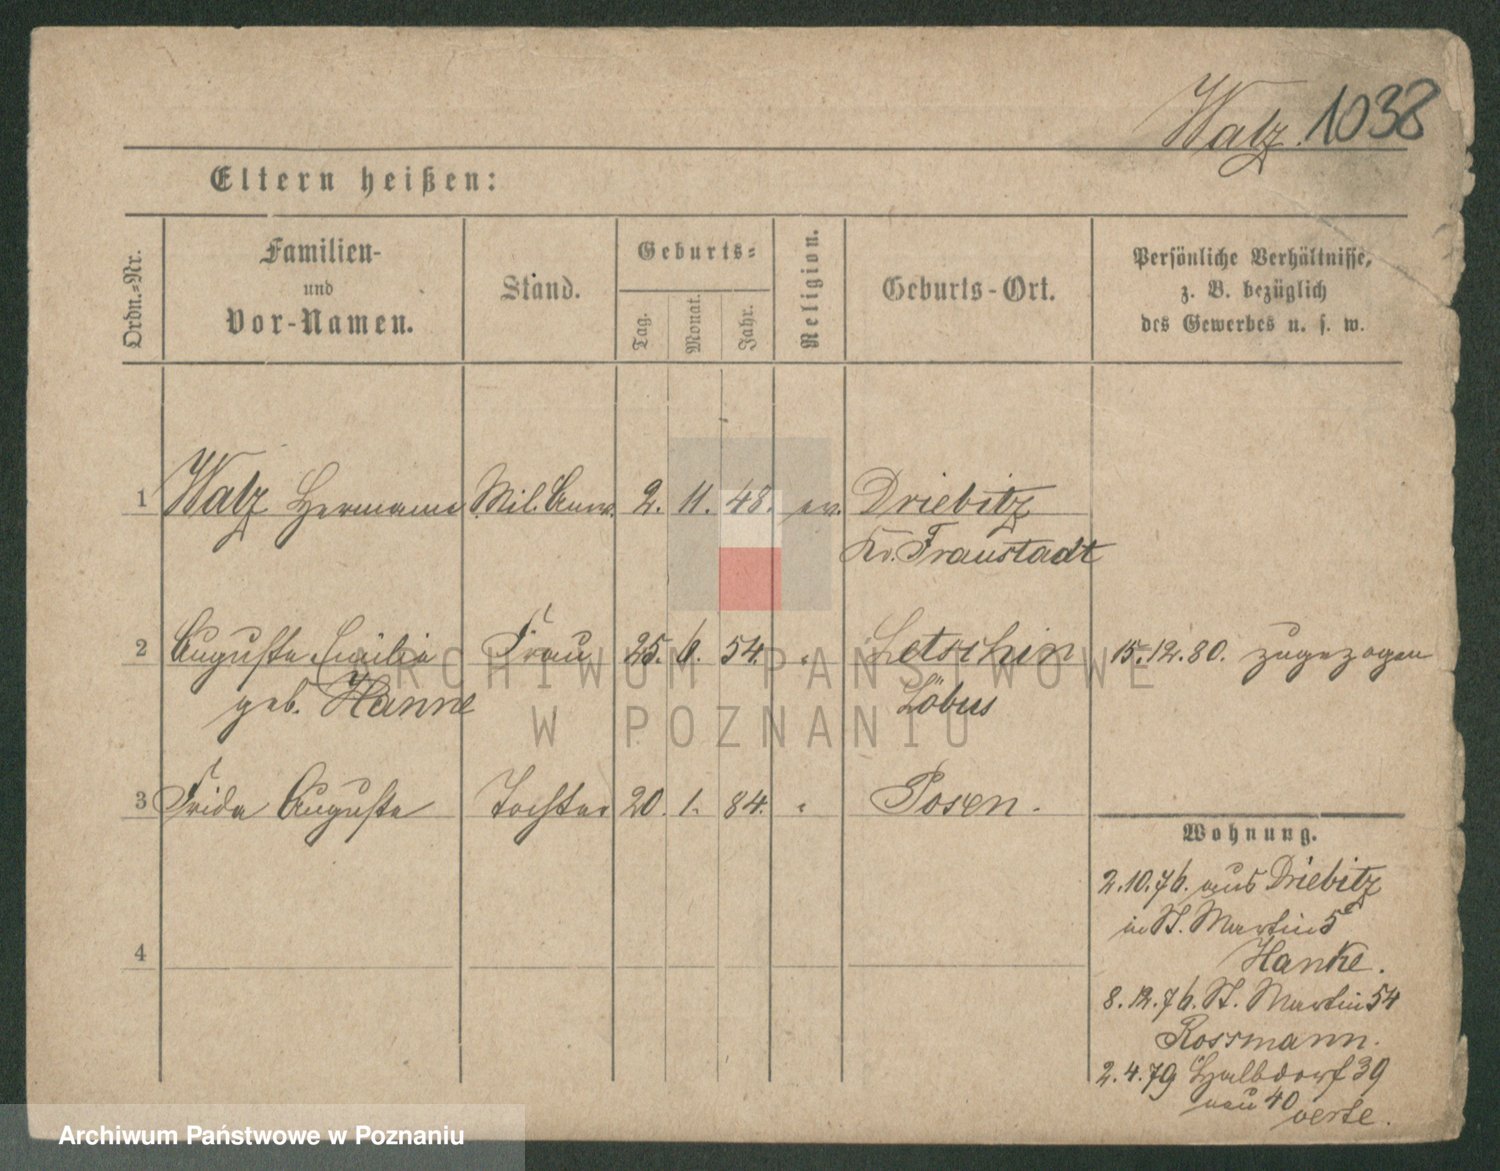 Walz. 1038
Eltern heißen:
Ordn.-Nr.
Familien-
und
Vor-Namen.
Stand.
Geburts-
Tag.
Monat.
Jahr.
Religion.
Geburts-Ort.
Persönliche Verhältnisse,
z. B. bezüglich
des Gewerbes u. s. w.
1 Walz Hermann Mil. Anw. 2. 11. 48. ev. Driebitz
Kr. Fraustadt
2 Auguste Emilie Frau 25. 6. 54. " Letschin 15.12.80. zugezogen
geb. Hanne Löbus
3 Frida Auguste Tochter 20. 1. 84. " Posen.
Wohnung.
2.10.76. aus Driebitz
in St. Martin 5
Hanke.
4
8.12.76. St. Martin 54
Rossmann.
2.4.79 Halbdorf 39
neu 40
ARCHIWUM PAŃSTWOWE
W POZNANIU
Archiwum Państwowe w Poznaniu